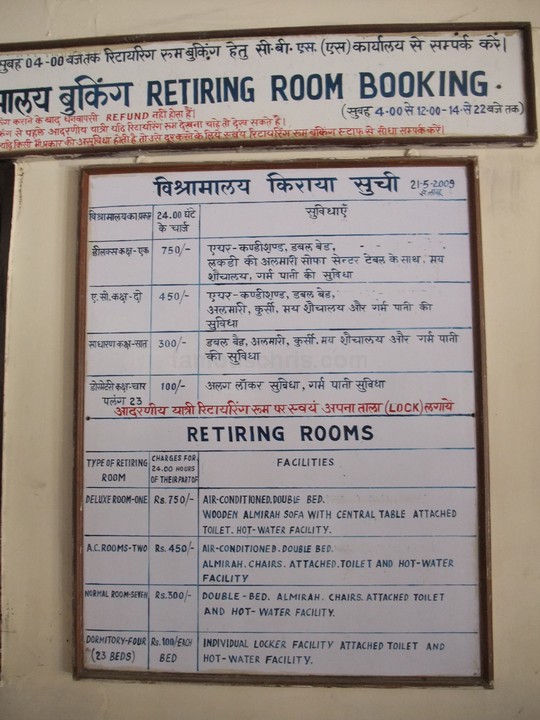 सुबह 04-00 बजे तक रिटायरिंग रूम बुकिंग हेतु सी.बी.एस. (एस) कार्यालय से सम्पर्क करें।
बुकिंग RETIRING ROOM BOOKING.
(सुबह 4.00 से 12.00-14 से 22 बजे तक)
कराने के बाद धनवापसी REFUND नहीं होता हैं।
से पहले आदरणीय यात्री यदि रिटायरिंग रूम देखना चाहे तो देख सकते हैं।
यदि किसी भी प्रकार की असुविधा होती है तो उसे दूर करने के लिये स्वयं रिटायरिंग रूम बुकिंग स्टाफ से सीधा सम्पर्क करें।
विश्रामालय किराया सुची 21-5-2009
विश्रामालय का प्रकार 24.00 घंटे के चार्ज सुविधाएँ
डीलक्स कक्ष-एक 750/- एयर-कण्डीशण्ड, डबल बेड,
लकडी की अलमारी सोफा सेन्टर टेबल के साथ, मय
शौचालय, गर्म पानी की सुविधा
ए.सी.कक्ष-दो 450/- एयर-कण्डीशण्ड, डबल बेड,
अलमारी, कुर्सी, मय शौचालय और गर्म पानी की
सुविधा
साधारण कक्ष-सात 300/- डबल बैड, अलमारी, कुर्सी, मय शौचालय और गर्म पानी
की सुविधा
डोरमेटरी कक्ष-चार 100/- अलग लॉकर सुविधा, गर्म पानी सुविधा
पलंग 23
आदरणीय यात्री रिटायरिंग रूम पर स्वयं अपना ताला (LOCK) लगायें
RETIRING ROOMS
TYPE OF RETIRING ROOM CHARGES FOR 24.00 HOURS OF THEIR PART OF FACILITIES
DELUXE ROOM-ONE Rs. 750/- AIR-CONDITIONED. DOUBLE BED.
WOODEN ALMIRAH SOFA WITH CENTRAL TABLE ATTACHED
TOILET. HOT-WATER FACILITY.
A.C. ROOMS-TWO Rs. 450/- AIR-CONDITIONED. DOUBLE BED.
ALMIRAH. CHAIRS. ATTACHED. TOILET AND HOT-WATER
FACILITY
NORMAL ROOM-SEVEN Rs. 300/- DOUBLE-BED. ALMIRAH. CHAIRS. ATTACHED TOILET
AND HOT-WATER FACILITY.
DORMITORY-FOUR Rs. 100/EACH INDIVIDUAL LOCKER FACILITY ATTACHED TOILET AND
(23 BEDS) BED HOT-WATER FACILITY.